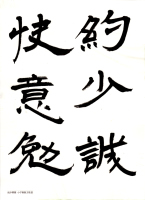 約少誠
快意勉